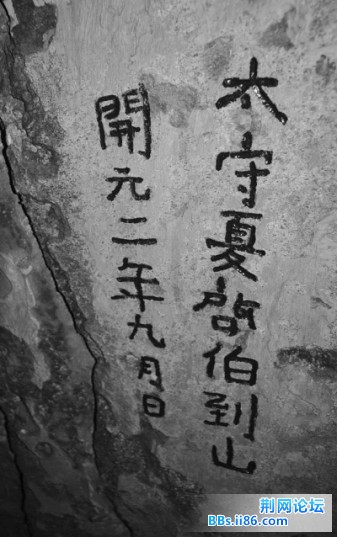 太守夏啓伯到山
開元二年九月日
荆网论坛
BBs.ii86.com